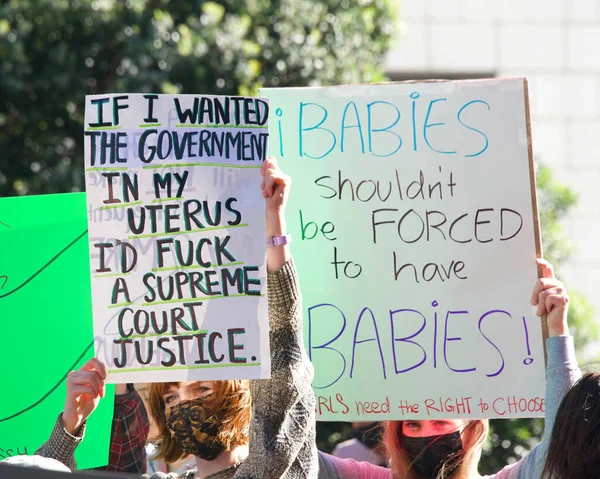 IF I WANTED
THE GOVERNMENT
IN MY
UTERUS
I'D FUCK
A SUPREME
COURT
JUSTICE.
¡BABIES
shouldn't
be FORCED
to have
BABIES!
need the RIGHT to CHOOSE